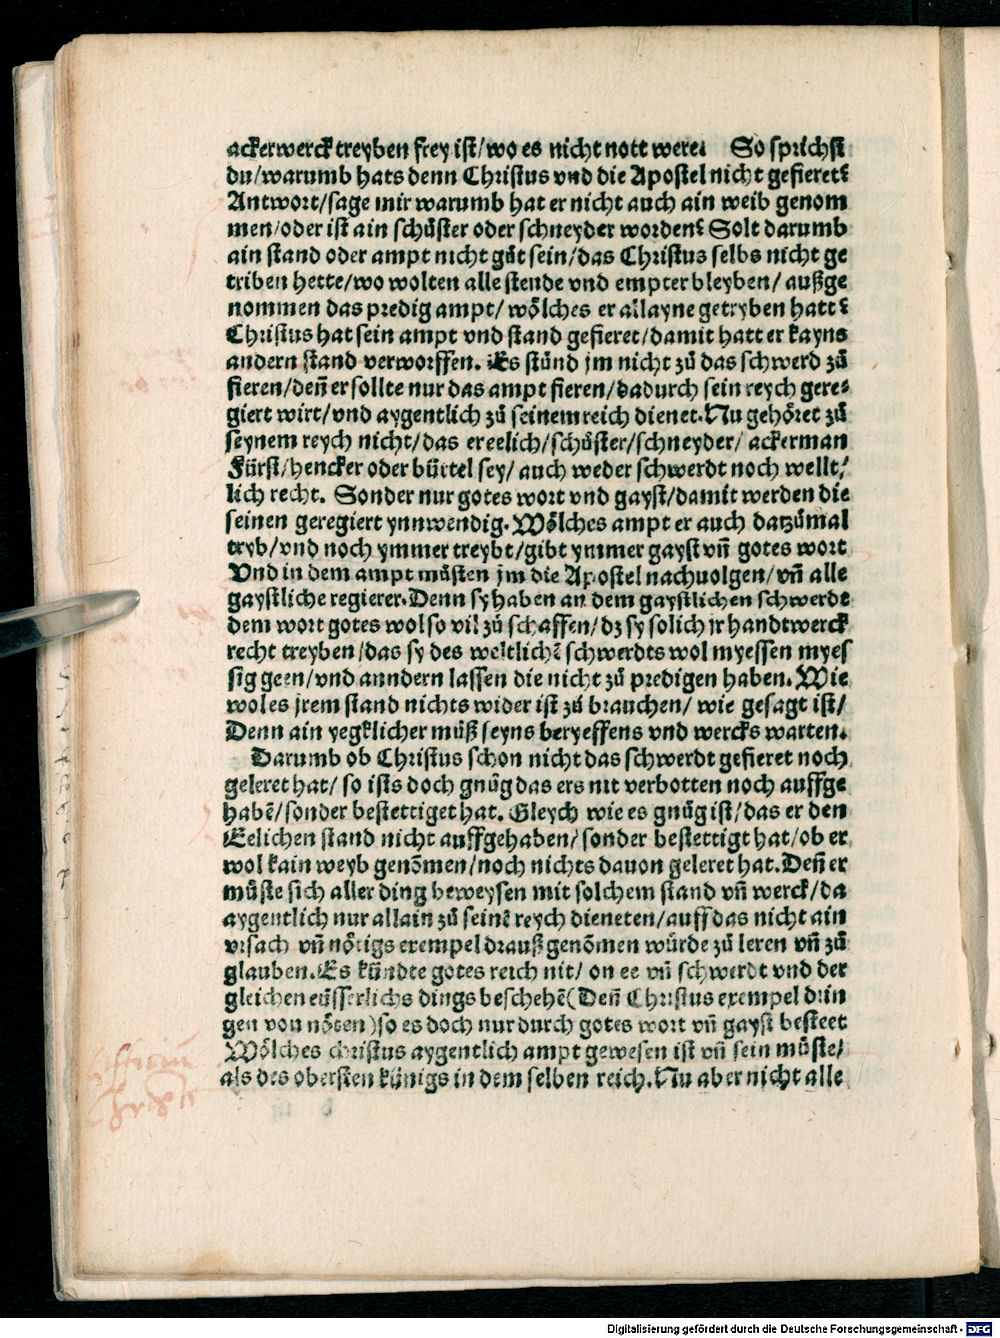 ackerwerck treyben frey ist/wo es nicht nott were. So sprichst
du/warumb hats denn Christus vnd die Apostel nicht gefieret?
Antwort/sage mir warumb hat er nicht auch ain weib genom
men/oder ist ain schůster oder schneyder worden? Solt darumb
ain stand oder ampt nicht gůt sein/das Christus selbs nicht ge
triben hette/wo wolten alle stende vnd empter bleyben/ außge
nommen das predig ampt/ wölches er allayne getryben hatt?
Christus hat sein ampt vnd stand gefieret/damit hatt er kayns
andern stand verworffen. Es stůnd jm nicht zů das schwerd zů
fieren/deñ er sollte nur das ampt fieren/dadurch sein reych gere⸗
giert wirt/vnd aygentlich zů seinem reich dienet. Nu gehöret zů
seynem reych nicht/das er eelich/schůster/schneyder/ ackerman
Fürst/hencker oder büttel sey/ auch weder schwerdt noch wellt/
lich recht. Sonder nur gotes wort vnd gayst/damit werden die
seinen geregiert ynnwendig. Wölches ampt er auch datzůmal
tryb/vnd noch ymmer treybt/gibt ymmer gayst vñ gotes wort
Vnd in dem ampt můsten jm die Apostel nachuolgen/vñ alle
gaystliche regierer. Denn sy haben an dem gaystlichen schwerde
dem wort gotes wol so vil zů schaffen/dz sy solich jr handtwerck
recht treyben/das sy des weltlichē schwerdts wol myessen myes
sig geen/vnd anndern lassen die nicht zů predigen haben. Wie
wol es jrem stand nichts wider ist zů brauchen/ wie gesagt ist/
Denn ain yegklicher můß seyns beryeffens vnd wercks warten.
Darumb ob Christus schon nicht das schwerdt gefieret noch
geleret hat/ so ists doch gnůg das ers nit verbotten noch auffge
habē/sonder bestettiget hat. Gleych wie es gnůg ist/das er den
Eelichen stand nicht auffgehaben/ sonder bestettigt hat/ob er
wol kain weyb genōmen/noch nichts dauon geleret hat. Deñ er
můste sich aller ding beweysen mit solchem stand vñ werck/da
aygentlich nur allain zů seinē reych dieneten/auff das nicht ain
vrsach vñ nötigs exempel drauß genōmen würde zů leren vñ zů
glauben. Es kündte gotes reich nit/ on ee vñ schwerdt vnd der
gleichen eüsserlichs dings beschehē(Deñ Christus exempel drin
gen von nöten)so es doch nur durch gotes wort vñ gayst besteet
Wölches christus aygentlich ampt gewesen ist vñ sein můste/
als des obersten künigs in dem selben reich. Nu aber nicht alle
Digitalisierung gefördert durch die Deutsche Forschungsgemeinschaft - DFG